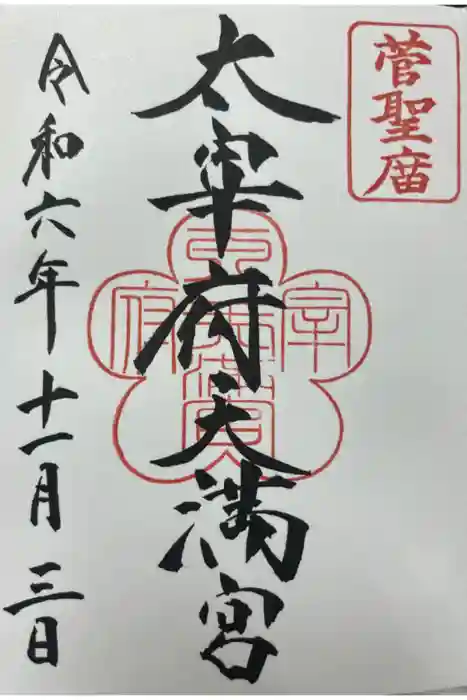 菅聖廟
太宰府天満宮
令和六年十一月三日